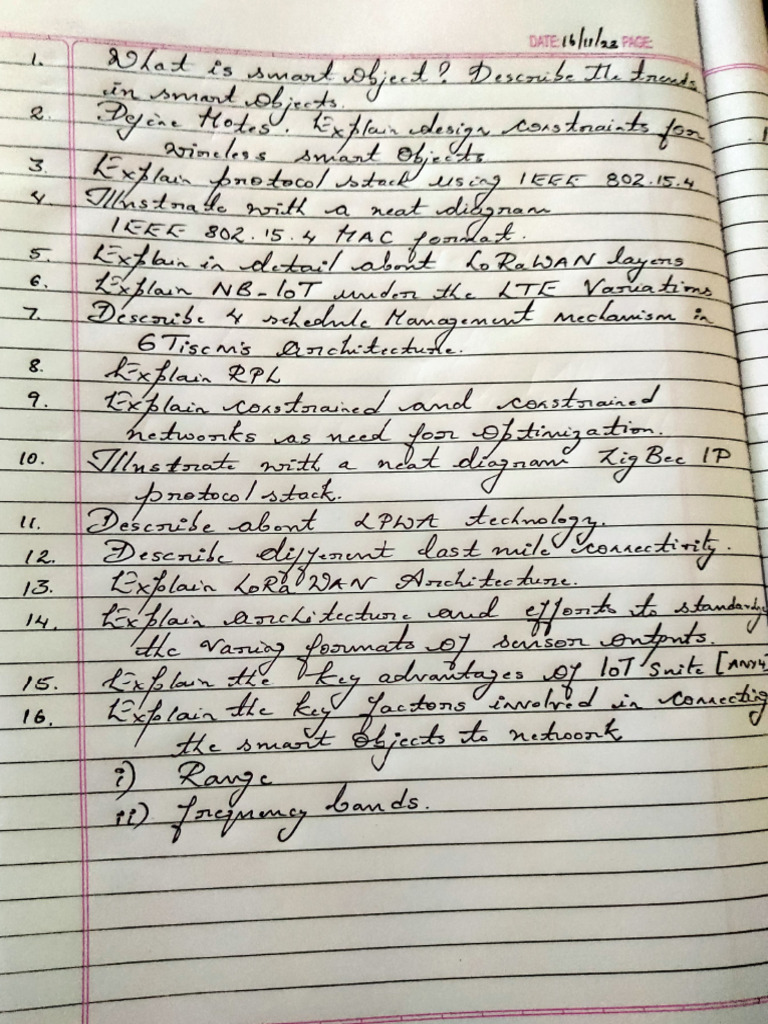 DATE: 16/11/22 PAGE:
1. What is smart object? Describe the trends
in smart objects.
2. Define Motes. Explain design constraints for
wireless smart objects
3. Explain protocol stack using IEEE 802.15.4
4. Illustrate with a neat diagram
IEEE 802.15.4 MAC format.
5. Explain in detail about LoRaWAN layers
6. Explain NB-IoT under the LTE Variations
7. Describe 4 schedule Management mechanism in
6Tiscm's architecture.
8. Explain RPL
9. Explain constrained and constrained
networks as need for optimization.
10. Illustrate with a neat diagram ZigBee IP
protocol stack.
11. Describe about LPWA technology.
12. Describe different last mile connectivity.
13. Explain LoRaWAN Architecture.
14. Explain architecture and efforts to
the varing formats of sensor outputs.
15. Explain the key advantages of IoT Suite [Any4]
16. Explain the key factors involved in connecting
the smart objects to network
i) Range
ii) frequency bands.